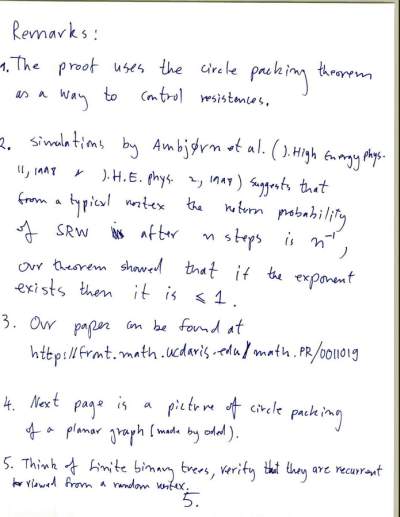 Remarks:
1. The proof uses the circle packing theorem
as a way to control resistences.
2. Simulations by Ambjørn et al. (J. High Energy phys.
11, 1998 & J.H.E. phys. 2, 1998) suggests that
from a typical vertex the return probability
of SRW after n steps is n⁻¹,
our theorem showed that if the exponent
exists then it is ≤ 1.
3. Our paper can be found at
https://front.math.ucdavis.edu/math.PR/0011019
4. Next page is a picture of circle packing
of a planar graph (made by oded).
5. Think of finite binary trees, verify that they are recurrent
viewed from a random vertex.
5.